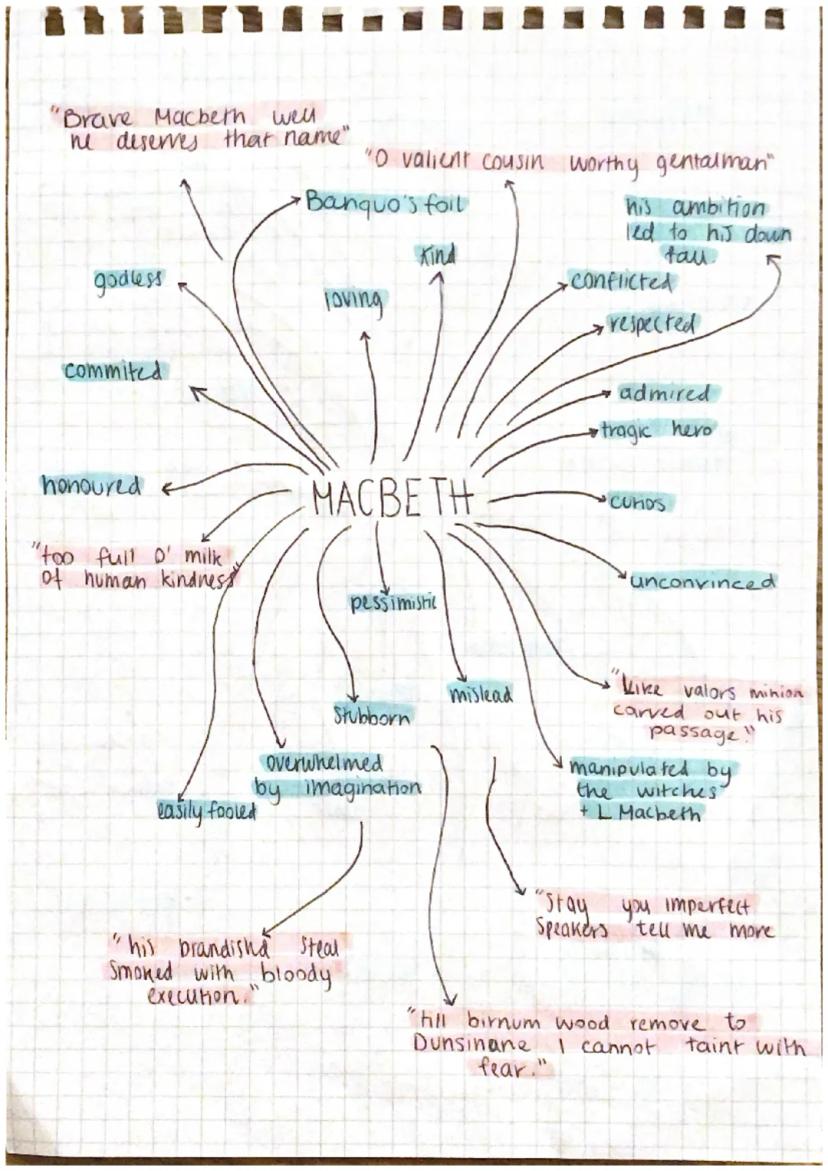 "Brave Macbeth well
he deserves that name"
"O valient cousin worthy gentalman"
Banquo's foil
his ambition
led to his down
fall
kind
godless
conflicted
loving
respected
commited
admired
tragic hero
honoured
MACBETH
curios
"too full O' milk
of human kindness"
unconvinced
pessimistic
mislead
"Like valors minion
carved out his
passage."
stubborn
overwhelmed
by imagination
manipulated by
the witches
+ L Macbeth
easily fooled
"Stay you imperfect
Speakers tell me more
"his brandishd steal
Smoked with bloody
execution."
"till birnum wood remove to
Dunsinane I cannot taint with
fear."